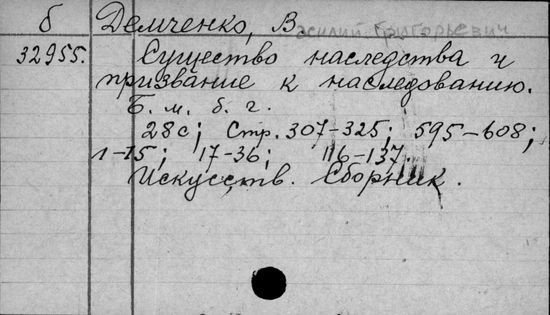 б Демченко, Василий Григорьевич
32955. Существо наследства и
призвание к наследованию.
Б. м. б. г.
28с; Стр. 307-325; 595-608;
1-15; 17-36; 116-137.
Искусств. Сборник.